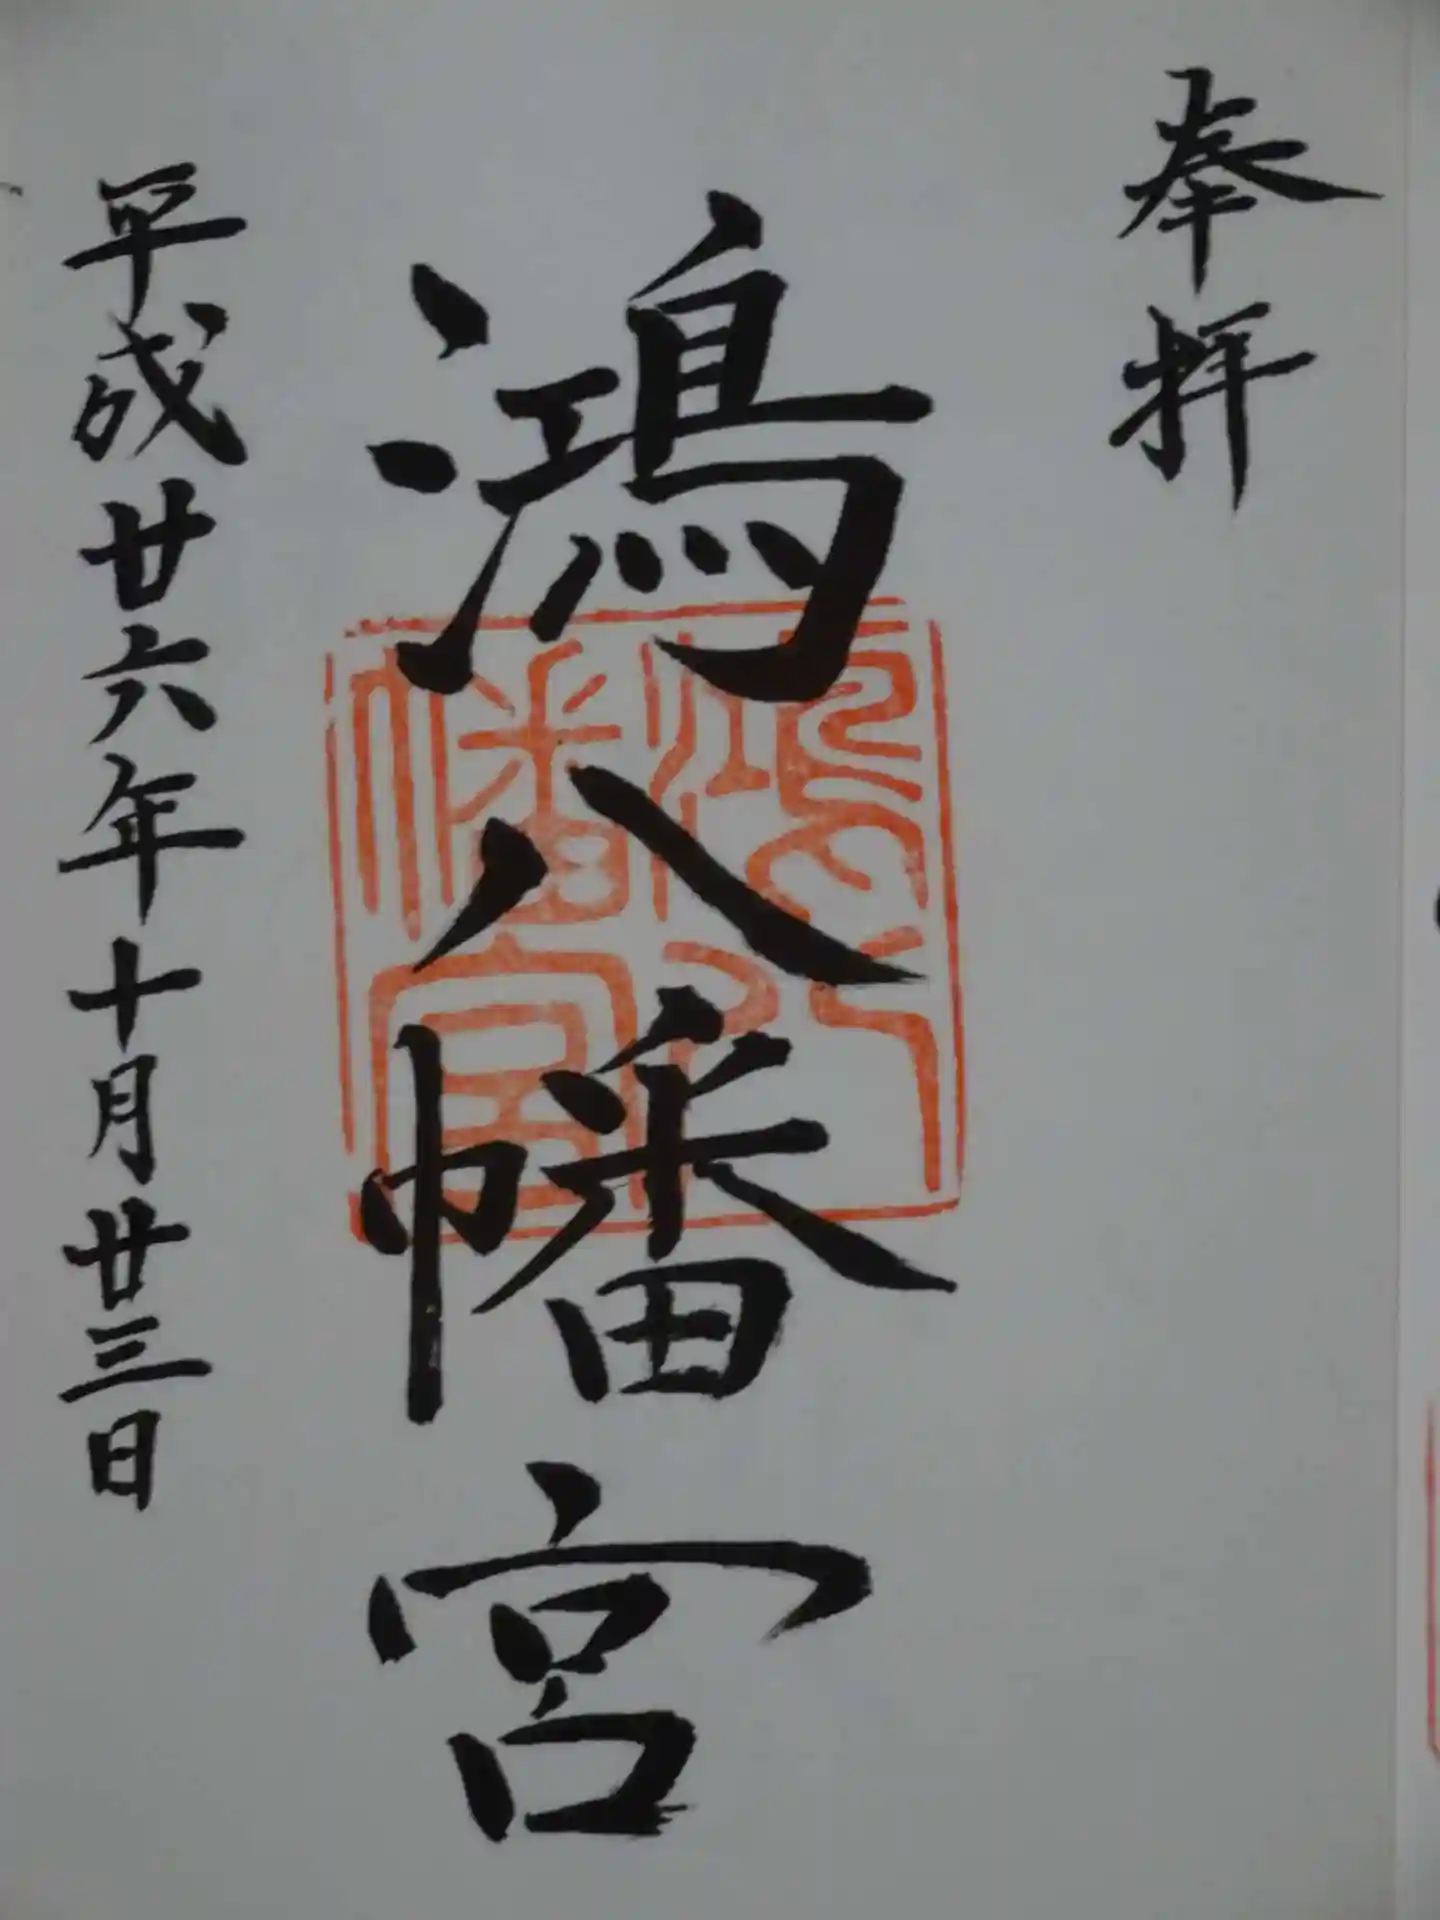 奉拝
鴻八幡宮
鴻八
幡宮
平成廿六年十月廿三日